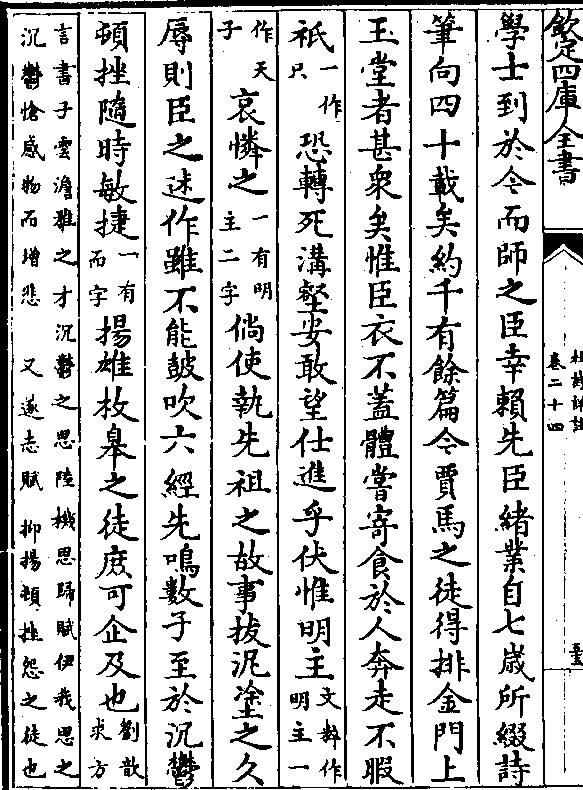 欽定四庫全書
杜詩詳註
卷二十四
學士到於今而師之臣幸賴先臣緒業自七歲所綴詩
筆向四十載矣約千有餘篇今賈馬之徒得排金門上
玉堂者甚衆矣惟臣衣不蓋體嘗寄食於人奔走不暇
祇一作只恐轉死溝壑安敢望仕進乎伏惟明主文粹作明主一
作天子哀憐之一有明主二字倘使執先祖之故事拔泥塗之久
辱則臣之述作雖不能鼓吹六經先鳴數子至於沉鬱
頓挫隨時敏捷一有而字揚雄枚臯之徒庶可企及也劉歆求方
言書子雲澹雅之才沉鬱之思陸機思歸賦伊我思之
沉鬱愴感物而增悲 又遂志賦抑揚頓挫怨之徒也